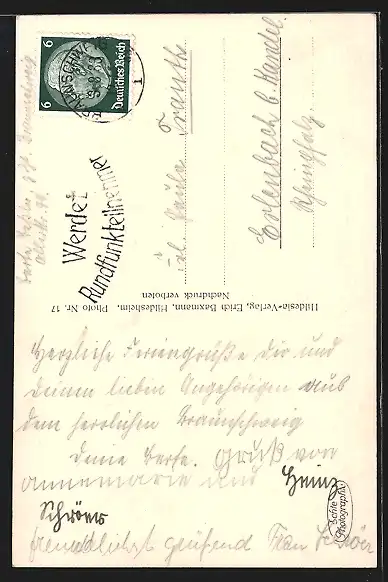 6 Deutsches Reich 6
BRAUNSCHWEIG
1
Werdet
Rundfunkteilnehmer
Frl. Paula Frank
Erlenbach b. Kandel
Rheinpfalz.
Hildesia-Verlag, Erich Baxmann, Hildesheim. Photo Nr. 17
Nachdruck verboten
Herzliche Feriengrüße dir und
deinen lieben Angehörigen aus
dem herrlichen Braunschweig
deine Gruß von
Annemarie und Heinz
Schröer
freundlichst grüßend Frau
Echte
Photographie